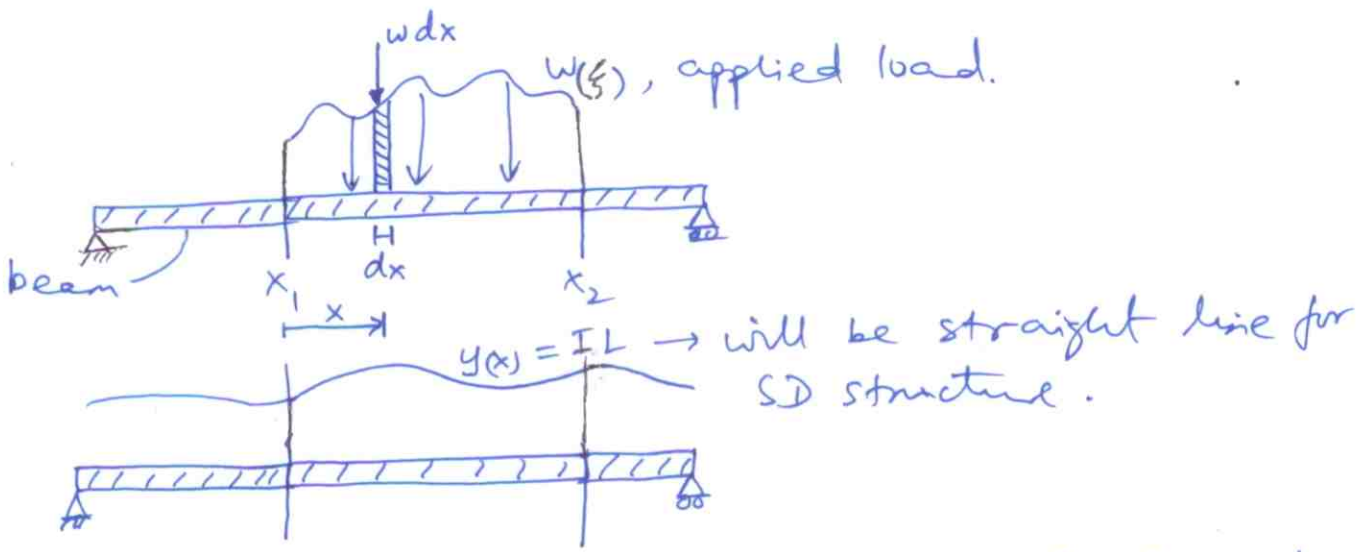 wdx
w(ξ), applied load.
beam
x₁
dx
x₂
x
y(x) = IL → will be straight line for
SD structure.